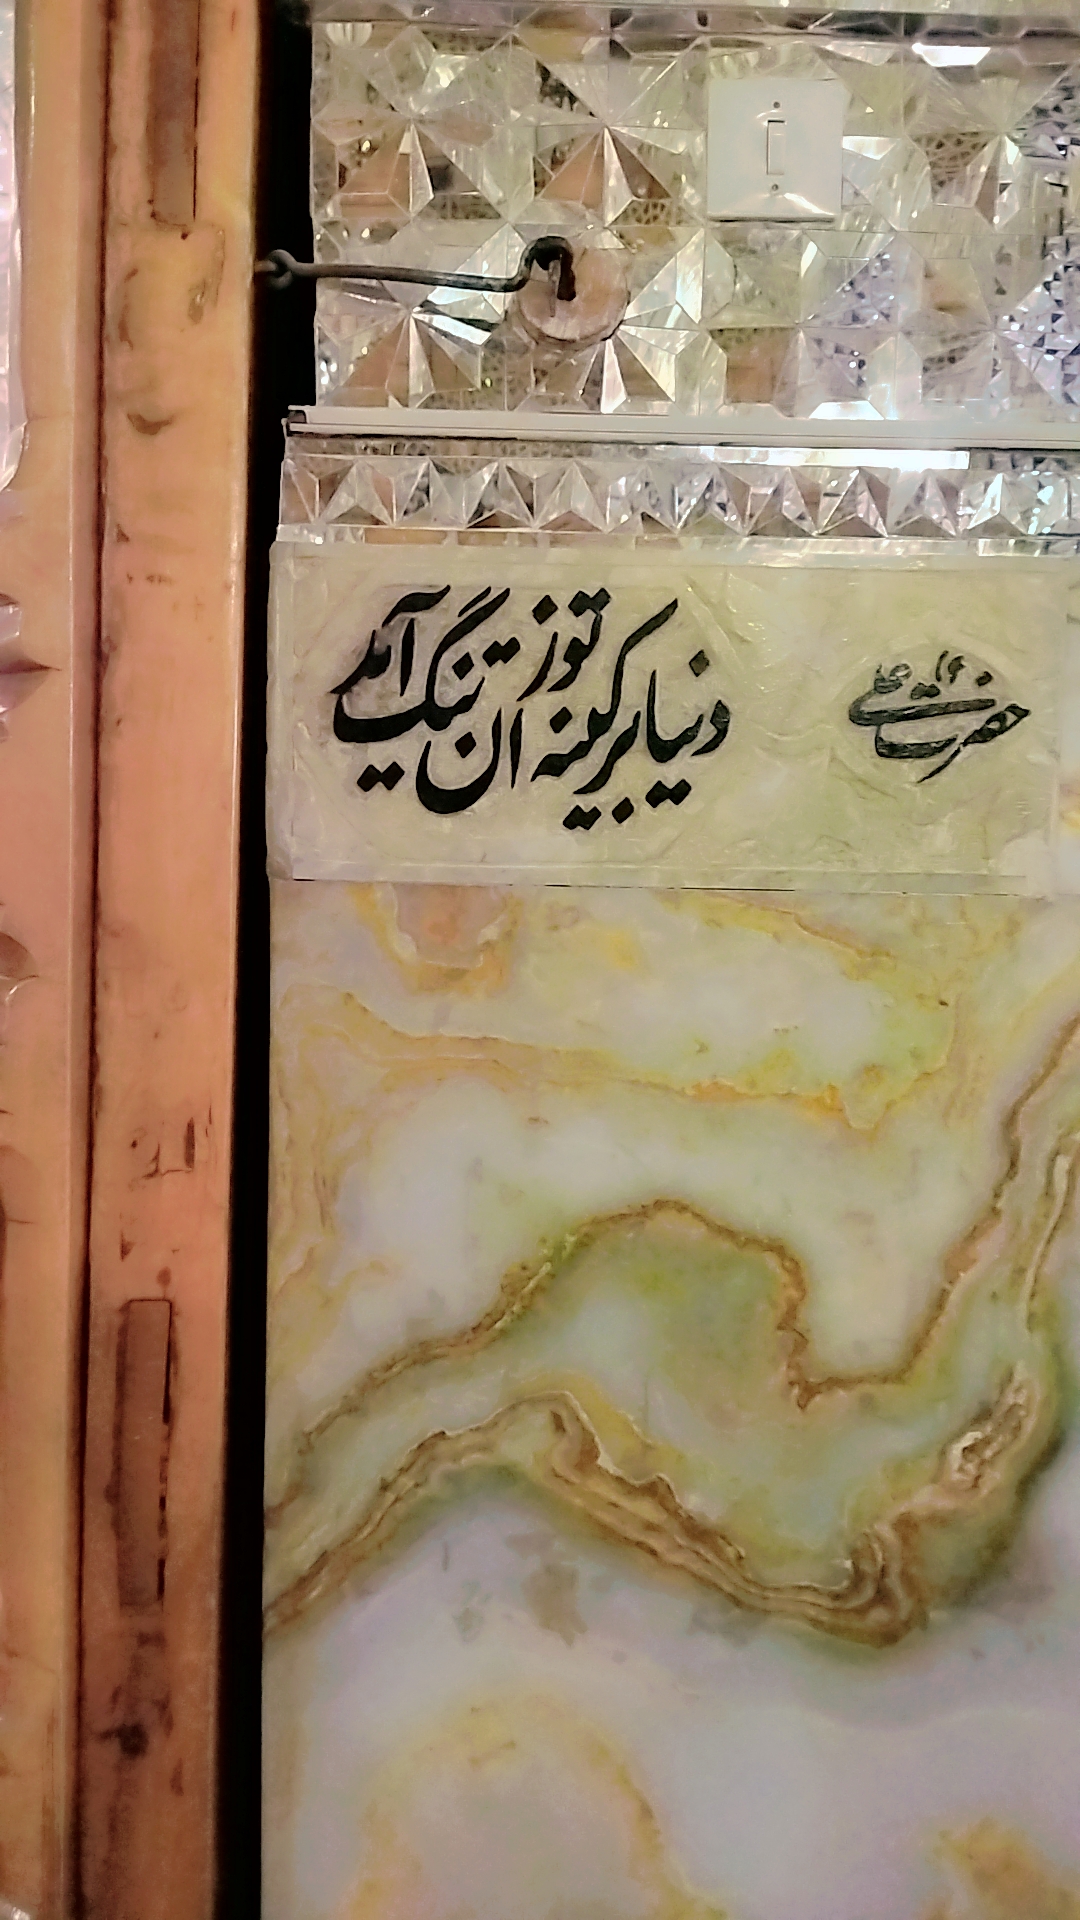 حضرت علی ع
دنیا بر کینه توزان تنگ آید